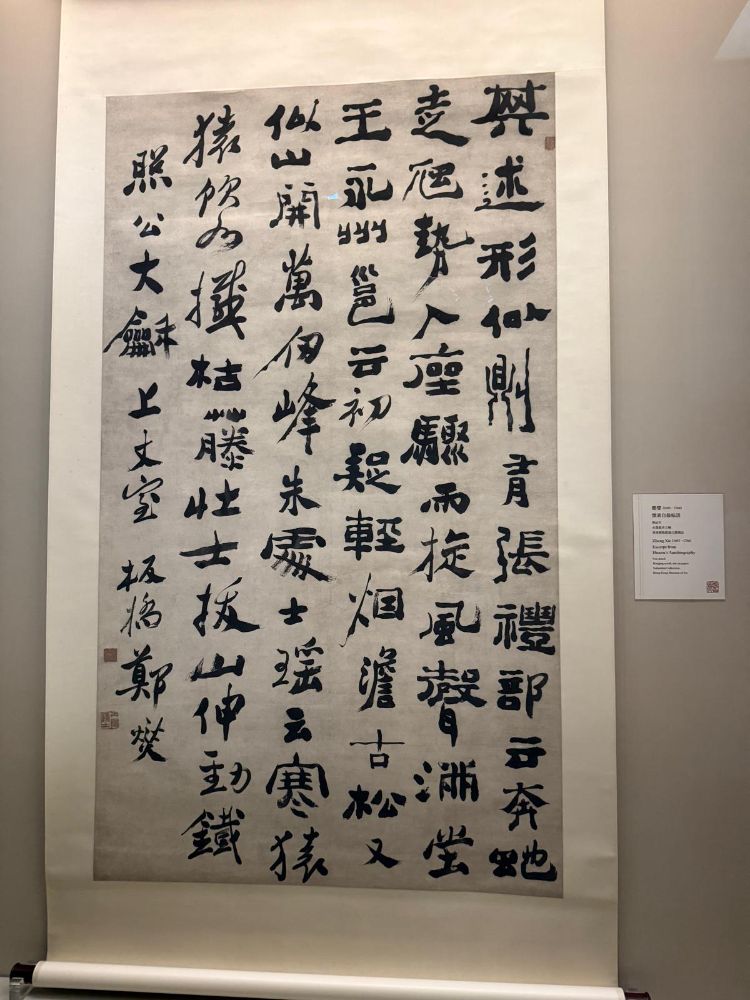 其述形似則有張禮部云奔虵
走虺勢入座驟雨旋風聲滿堂
王永州邕云初疑輕烟澹古松又
似山開萬仞峰朱處士瑶云寒猿
猿飲水撼枯藤壯士拔山伸勁鐵
照公大龢上丈室 板橋鄭燮
鄭燮 (1693 - 1766)
Zheng Xie (1693 - 1766)
Excerpt from
Huaisu's Autobiography
Hanging scroll, ink on paper
Hong Kong Museum of Art